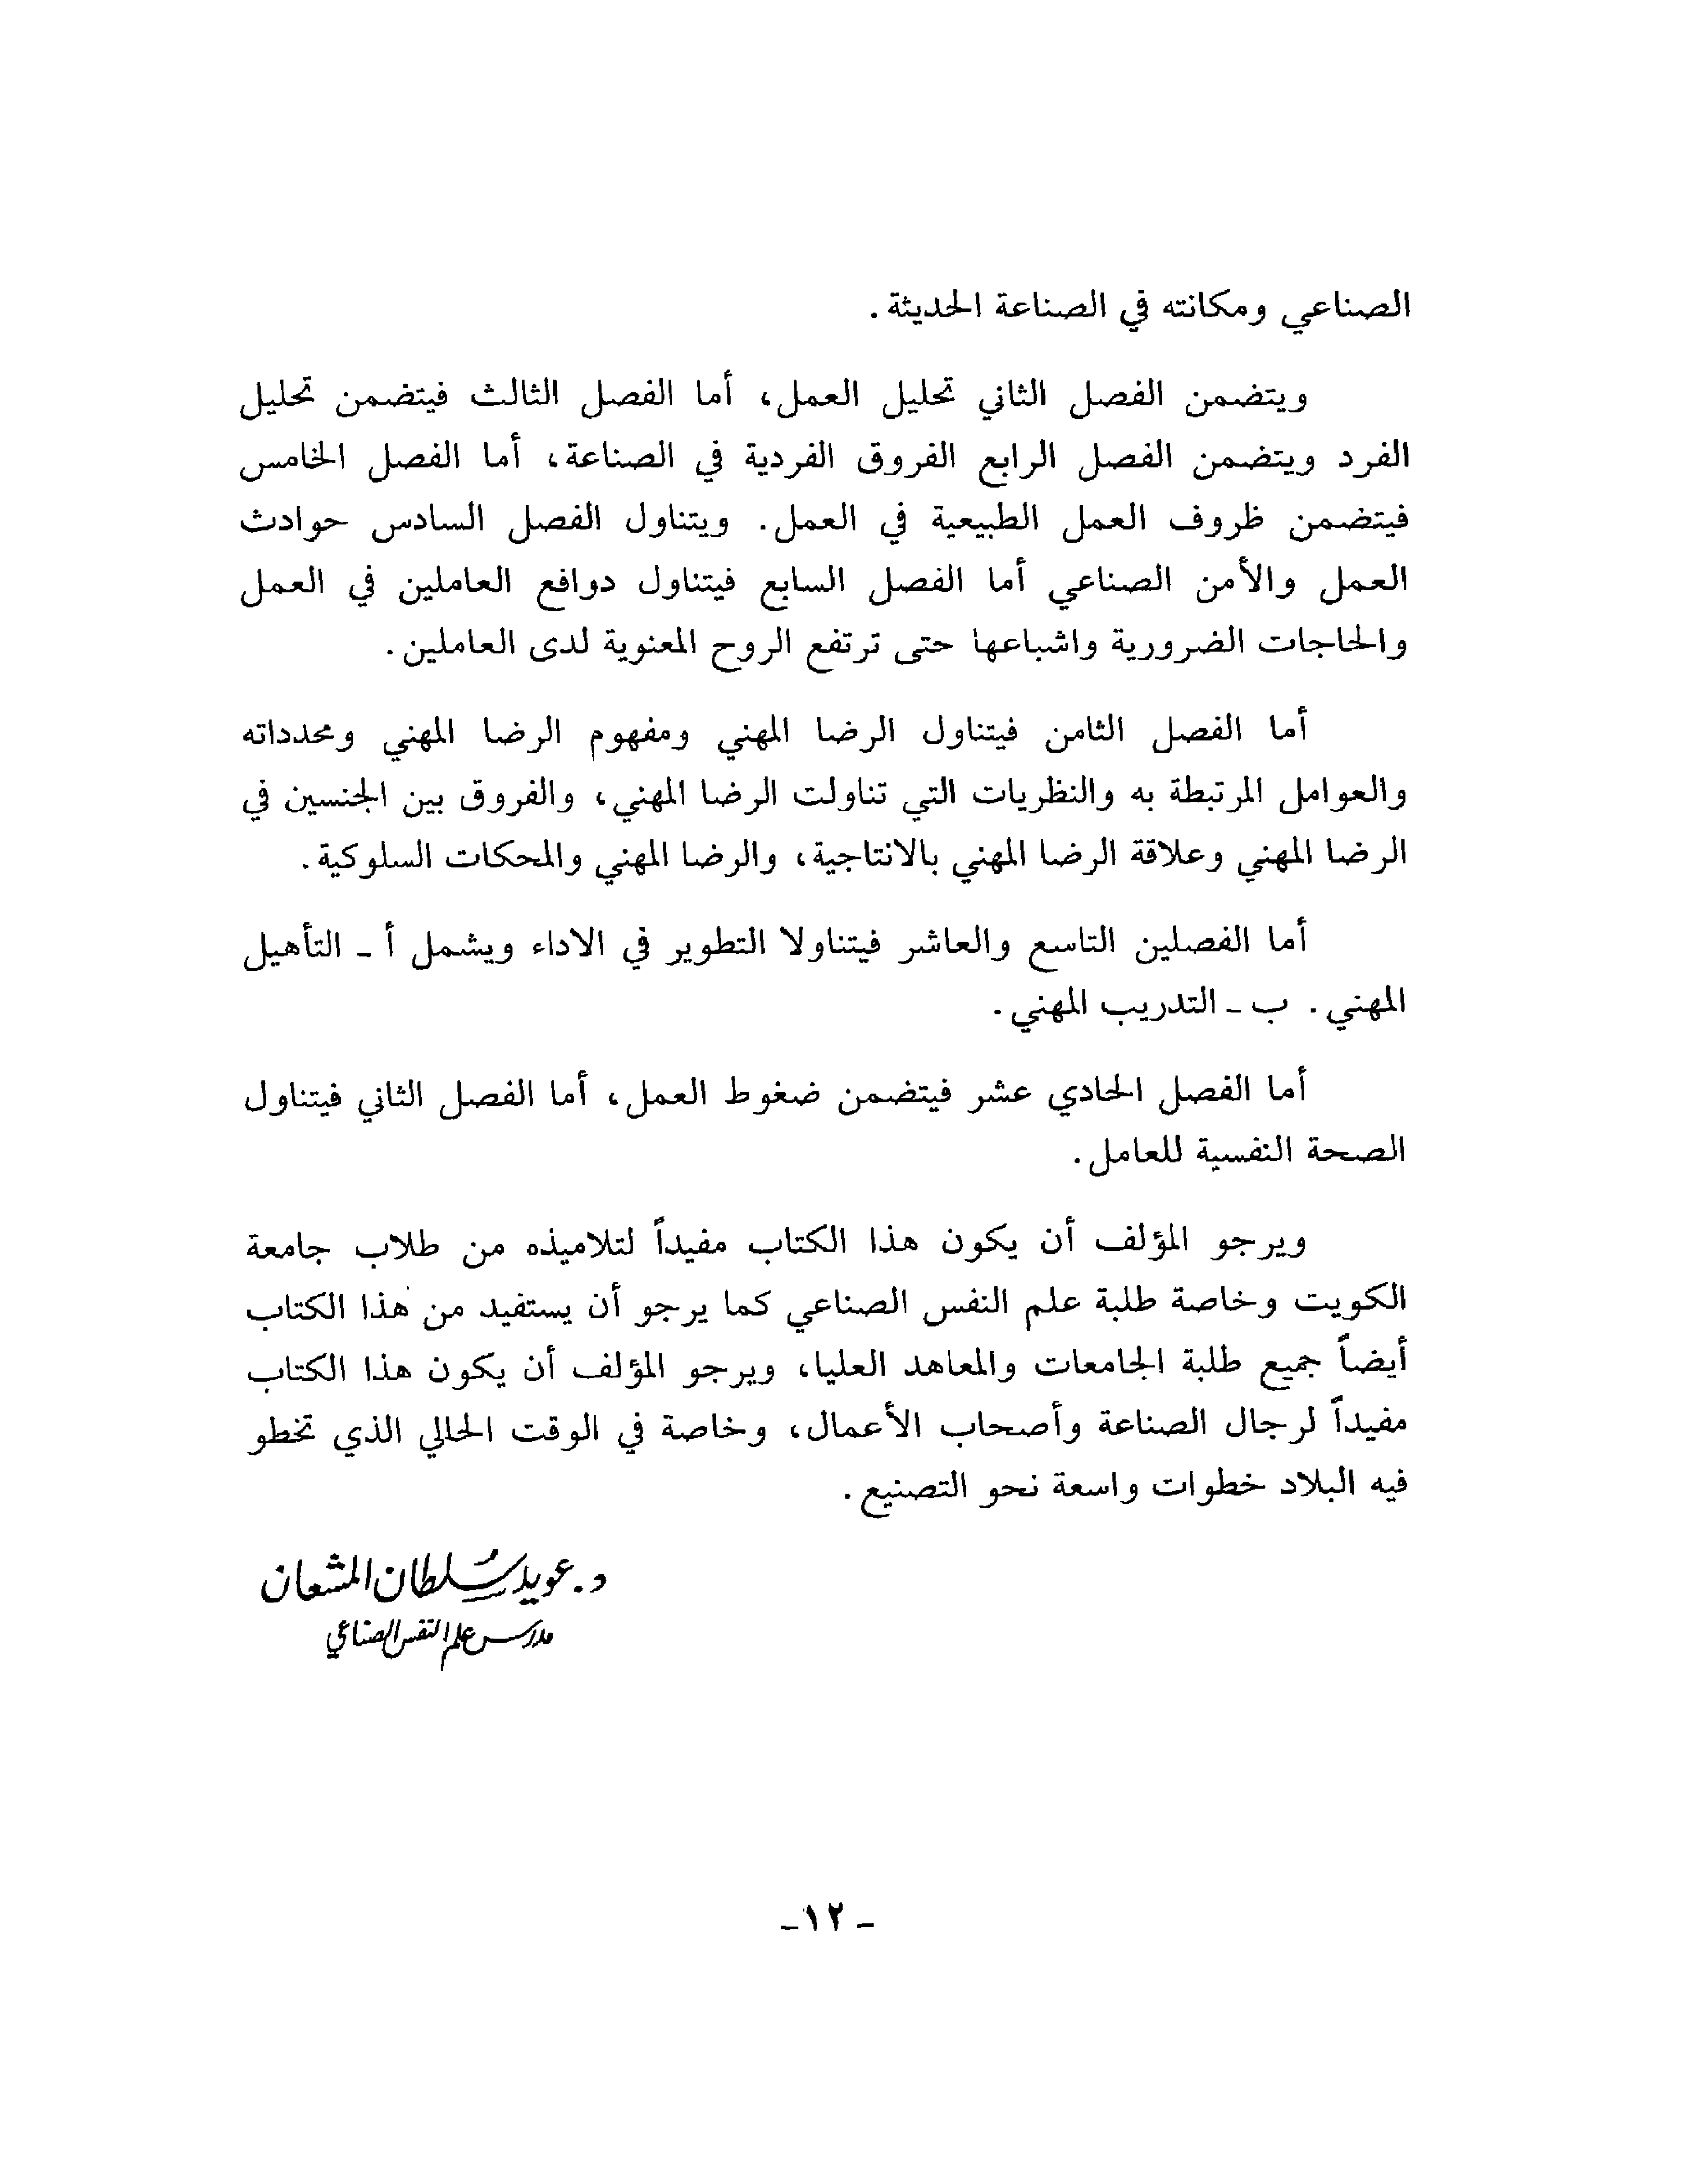 الصناعي ومكانته في الصناعة الحديثة.
ويتضمن الفصل الثاني تحليل العمل، أما الفصل الثالث فيتضمن تحليل
الفرد ويتضمن الفصل الرابع الفروق الفردية في الصناعة، أما الفصل الخامس
فيتضمن ظروف العمل الطبيعية في العمل. ويتناول الفصل السادس حوادث
العمل والأمن الصناعي أما الفصل السابع فيتناول دوافع العاملين في العمل
والحاجات الضرورية واشباعها حتى ترتفع الروح المعنوية لدى العاملين.
أما الفصل الثامن فيتناول الرضا المهني ومفهوم الرضا المهني ومحدداته
والعوامل المرتبطة به والنظريات التي تناولت الرضا المهني، والفروق بين الجنسين في
الرضا المهني وعلاقة الرضا المهني بالانتاجية، والرضا المهني والمحكات السلوكية.
أما الفصلين التاسع والعاشر فيتناولا التطوير في الاداء ويشمل أ ـ التأهيل
المهني. ب ـ التدريب المهني.
أما الفصل الحادي عشر فيتضمن ضغوط العمل، أما الفصل الثاني فيتناول
الصحة النفسية للعامل.
ويرجو المؤلف أن يكون هذا الكتاب مفيداً لتلاميذه من طلاب جامعة
الكويت وخاصة طلبة علم النفس الصناعي كما يرجو أن يستفيد من هذا الكتاب
أيضاً جميع طلبة الجامعات والمعاهد العليا، ويرجو المؤلف أن يكون هذا الكتاب
مفيداً لرجال الصناعة وأصحاب الأعمال، وخاصة في الوقت الحالي الذي تخطو
فيه البلاد خطوات واسعة نحو التصنيع.
د. عويد سلطان المشعان
مدرس علم النفس الصناعي
ـ ١٢ ـ